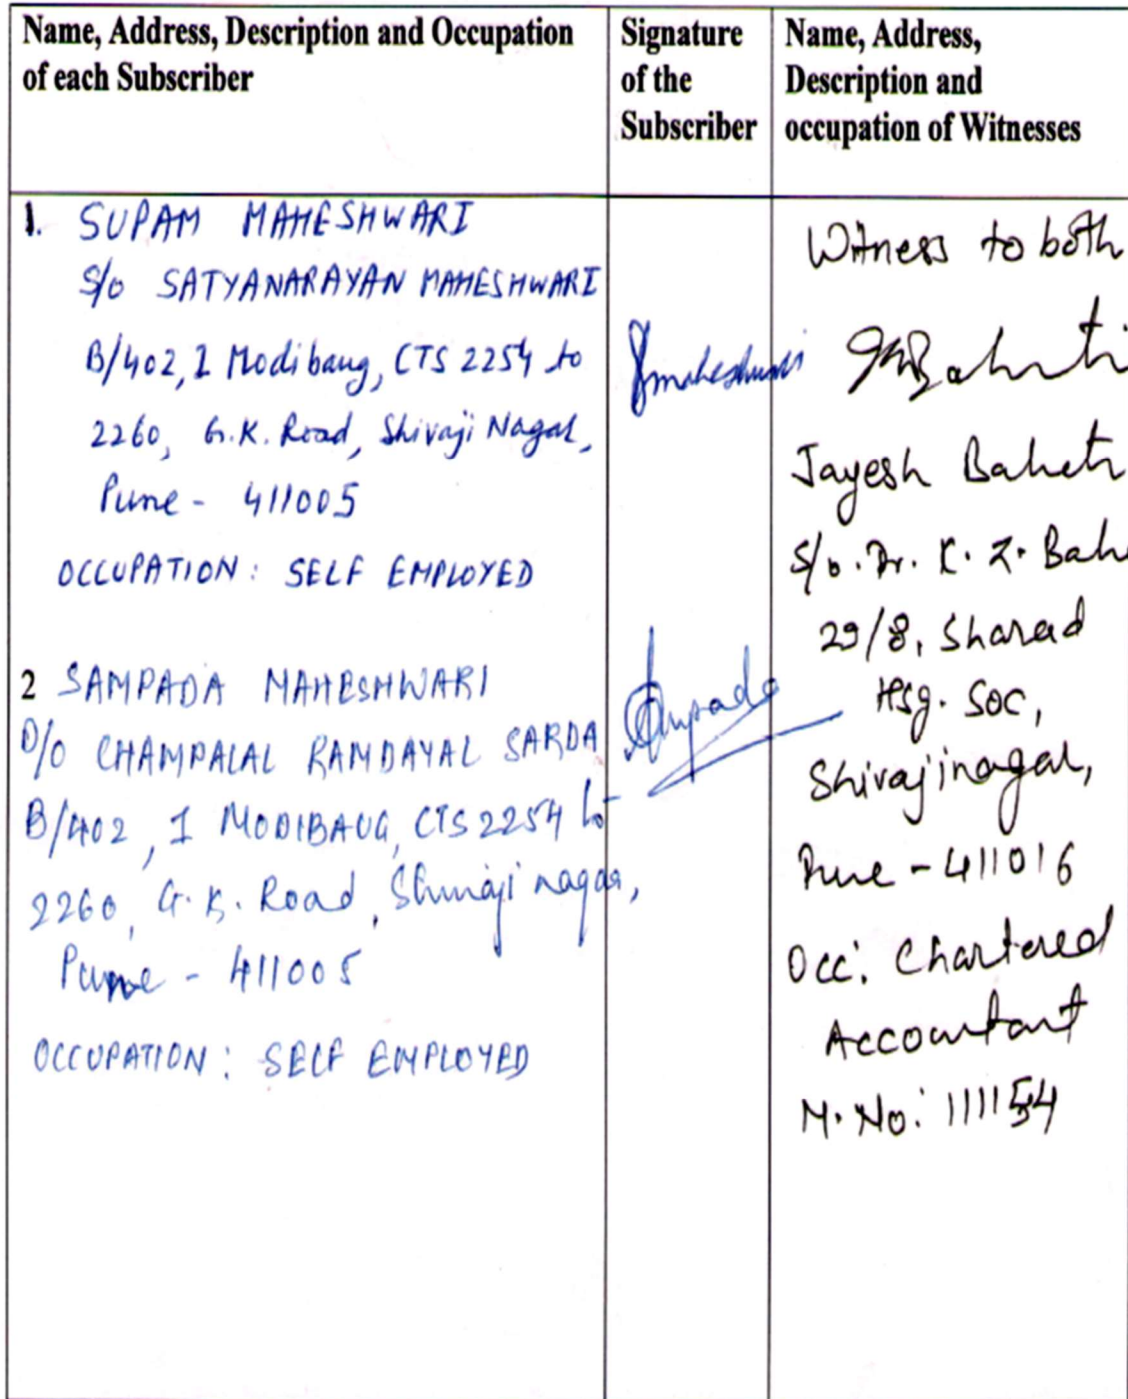 Name, Address, Description and Occupation
of each Subscriber
Signature
of the
Subscriber
Name, Address,
Description and
occupation of Witnesses
1. SUPAM MAHESHWARI
S/o SATYANARAYAN MAHESHWARI
B/402, I Modibaug, CTS 2254 to
2260, G.K. Road, Shivaji Nagar,
Pune - 411005
OCCUPATION: SELF EMPLOYED
2 SAMPADA MAHESHWARI
D/O CHAMPALAL RAMDAYAL SARDA
B/402, I MODIBAUG, CTS 2254 to
2260, G.K. Road, Shivaji nagar,
Pune - 411005
OCCUPATION: SELF EMPLOYED
Smaheshwari
Sampada
Witness to both
Jayesh Baheti
S/o. Dr. K. Z. Bahe
29/8, Sharad
Hsg. Soc,
Shivajinagar,
Pune - 411016
Occ: Chartered
Accountant
M. No: 111154